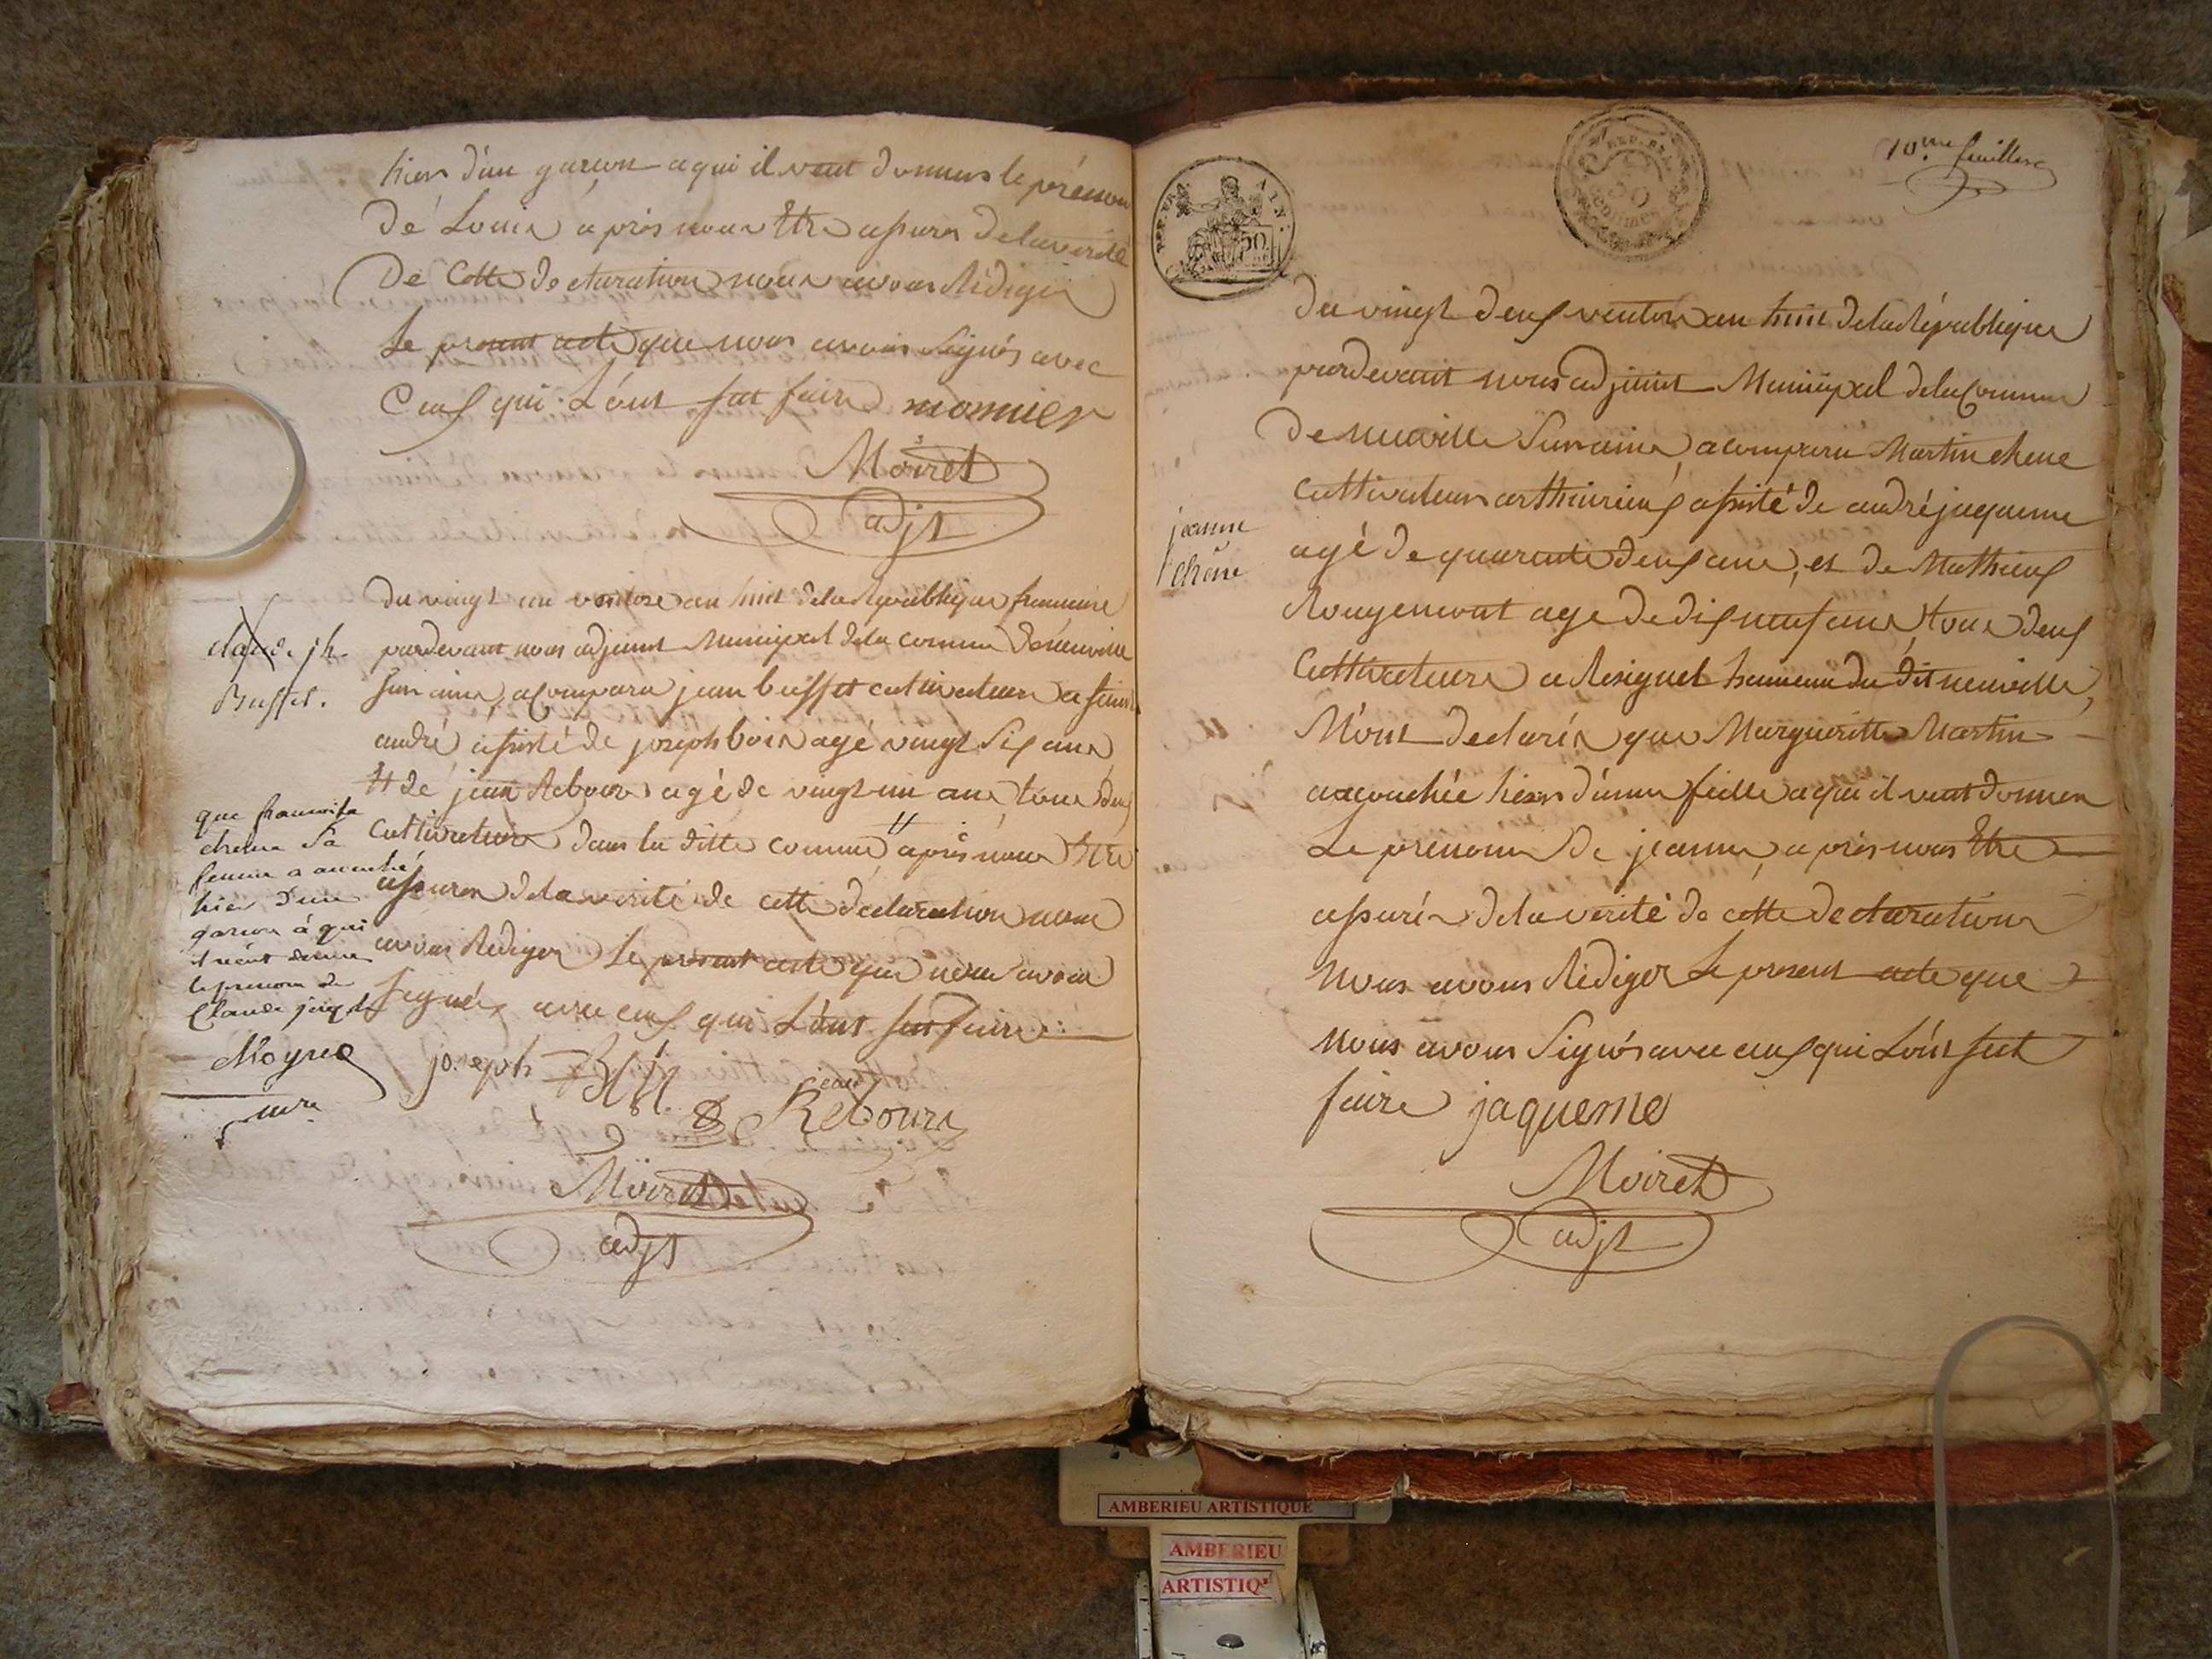 hier d'un garçon a qui il veut donner le prénom
dé Louis après nous Etre assurés de la verité
De Cette declaration nous avons Rédiger
Le present acte que nous avons Signés avec
Ceux qui L'ont fat faire monnier
Moiret
adjt
du vingt un ventose an huit de la Republique francaise
pardevant nous adjoint Municipal de la comune de neuville
sur ain, a comparu jean buffet cultivateur a saint
andré, assisté de joseph bois agé vingt six ans
Et de jean Rebour agé de vingt un ans tous deux
Cultivateurs dans la ditte comune après nous Etre
assurés de la verité de cette declaration nous
avons Rediger Le present acte que nous avons
signés avec eux qui L'ont fat faire
claude jh.
Buffet.
que francoise
chelue sa
femme a accouché
hier d'un
garcon à qui
il veut donner
le prenom de
Claude
Moyret
joseph
jean
Rebours
Moiret
adjt
REP. FRA. AIN.
50
REP. FRA.
50
centimes
10.me feuillet
du vingt deux ventose an huit de la République
pardevant nous adjoint Municipal de la Comune
De neuville Sur ain, a comparu Martin chene
Cultivateur assisté de andré jaqueme
agé de quarante deux ans, et de Mathieux
Rougemont age de dix neuf ans, tous deux
Cultivateurs a Resignel hameau du dit neuville,
M'ont declarés que Margueritte Martin
a acouchée hier d'une fille a qui il veut donner
Le prenom de jeanne, après nous Etre
assurés de la verité de cette declaration
Nous avons Rédiger Le present acte que
Nous avons Signés avec eux qui L'ont fat
faire jaqueme
jeanne
chêne
Moiret
adjt
AMBERIEU ARTISTIQUE
AMBERIEU
ARTISTIQ